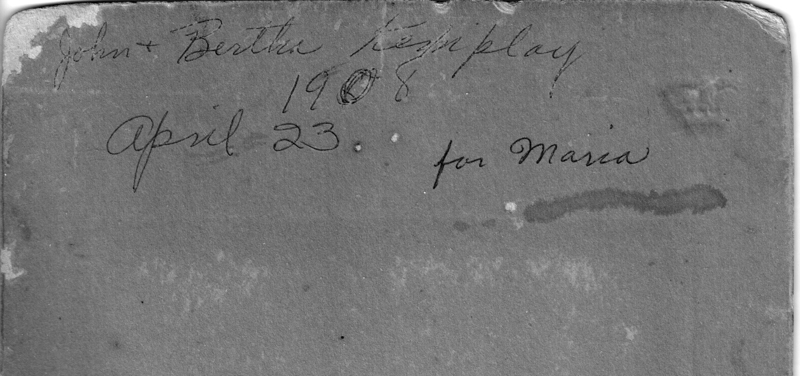 John + Bertha Kemplay
1908
April 23.
for Maria